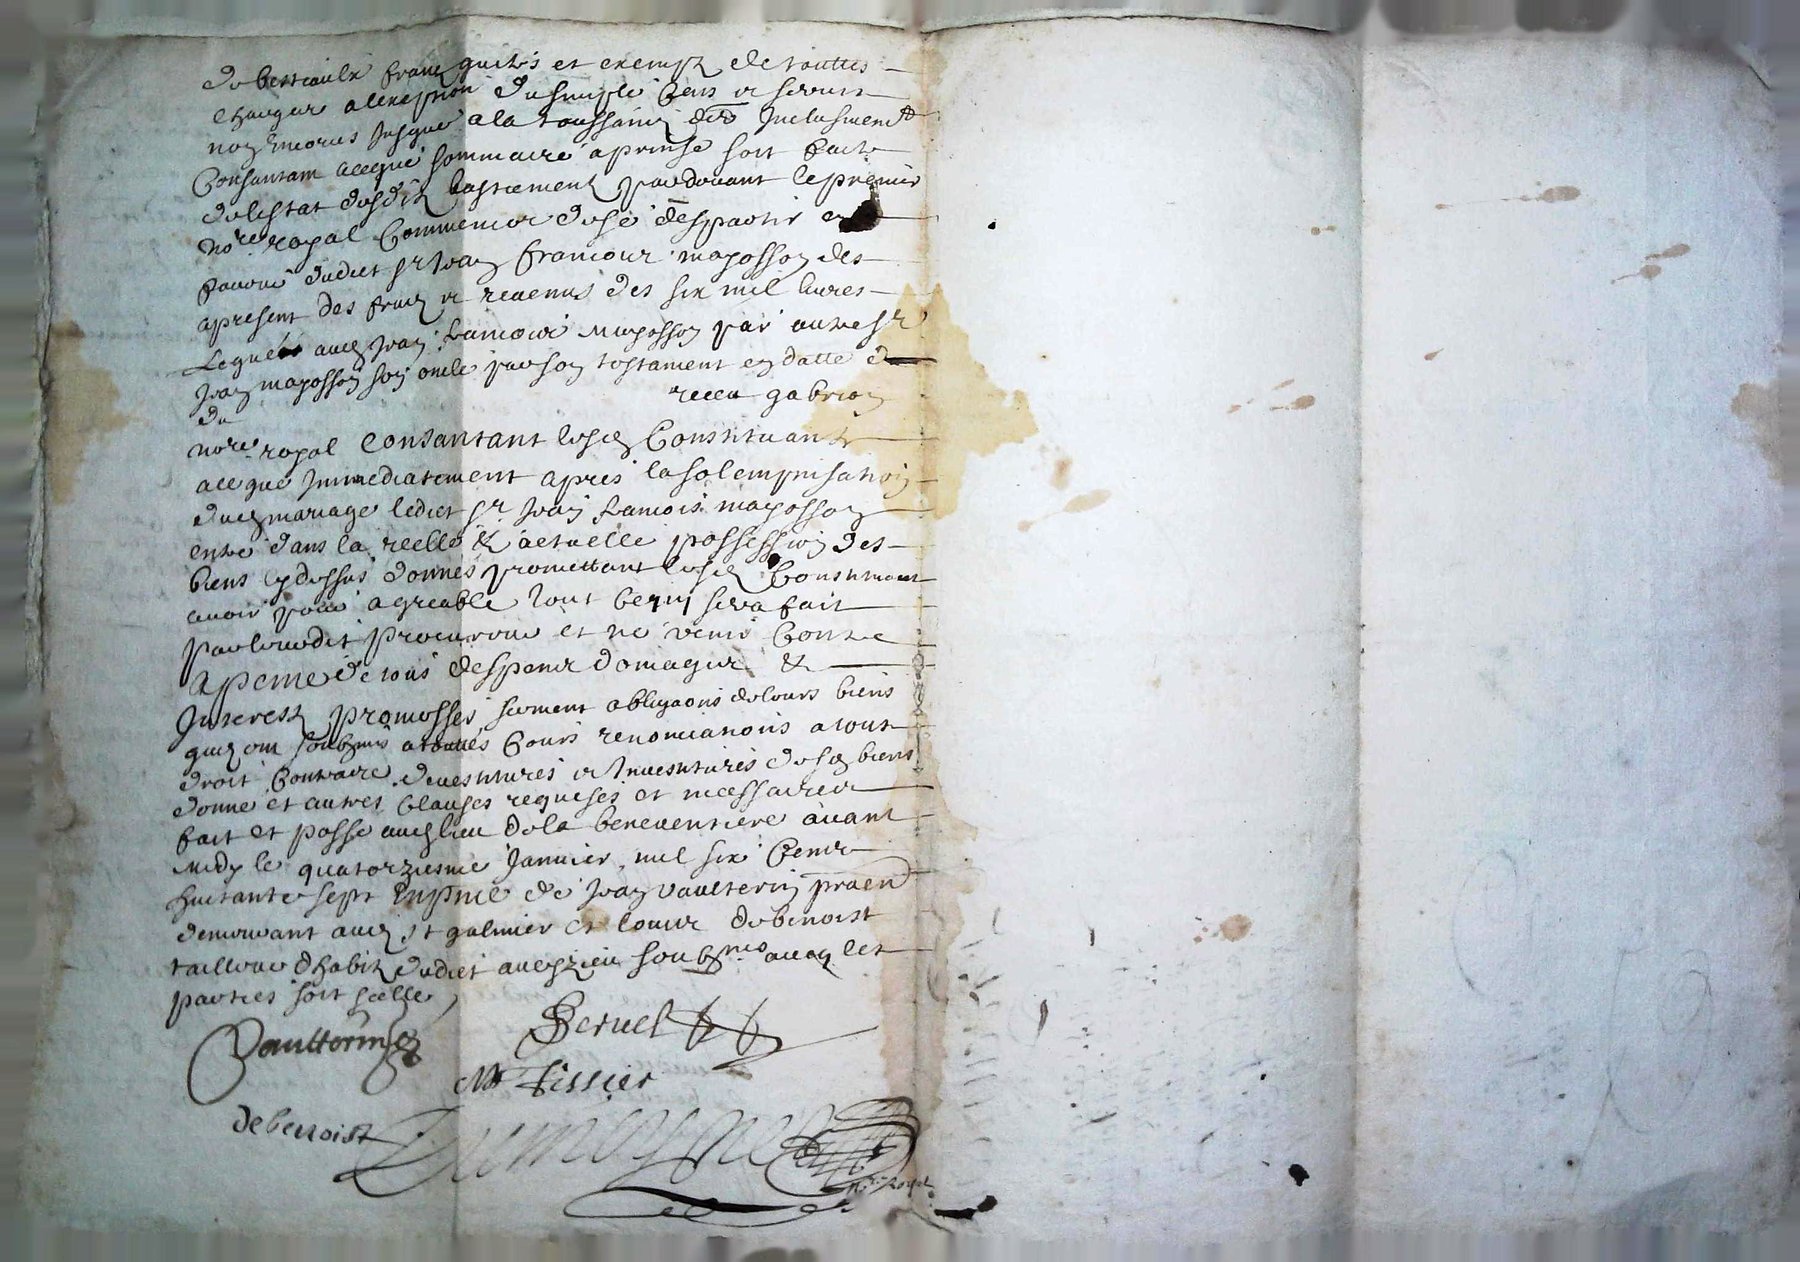 de bestiaulx francq quictes et exemptz de touttes
charges a lexeption du simple cens et servis
noz encorus jusques a la toussainz der inclusivement
Consantam alecque sommaire aprinse soit faite
de lestat desditz bastiementz pardevant le premier
nore royal Commencer de se despartir en
faveur dudict sr Jean francois mayosson des
apresent des fruitz et revenus des six mil livres
Legués audz Jean francois mayosson par autre sr
Jean mayosson son oncle par son testament en datte
du
receu gabrion
nore royal consantant lesdz Constituantz
alecque Immediatement apres la solempnisation
dudz mariage ledict sr Jean francois mayosson
entre dans la reelle & actuelle possession des
biens cy dessus donnés promettant lesdz Constituant
avoir pour agreable tout ce quj sera fait
par leurdit procureur et ne venir Contre
a peine de tous despens domages &
Interestz promesses serment obligaons de leurs biens
quilz ont soubzmis a touttes Cours renonciations a tout
droit Contraire devestitures et Investitures desdz biens
donne et autres Clauses requises et necessaires
fait et passe audz lieu de la beneventiere avant
midy le quatorziesme Janvier mil six Centz
huictante sept En pnce de Jean vaulterin praen
demeurant audz st galmier et louis debenoist
tailleur dhabitz dudict audz lieu soubznes avecq les
parties soit scelle
Vaultterin
Peruel
M Tissier
debenoist
Dumoyne
nore Royal